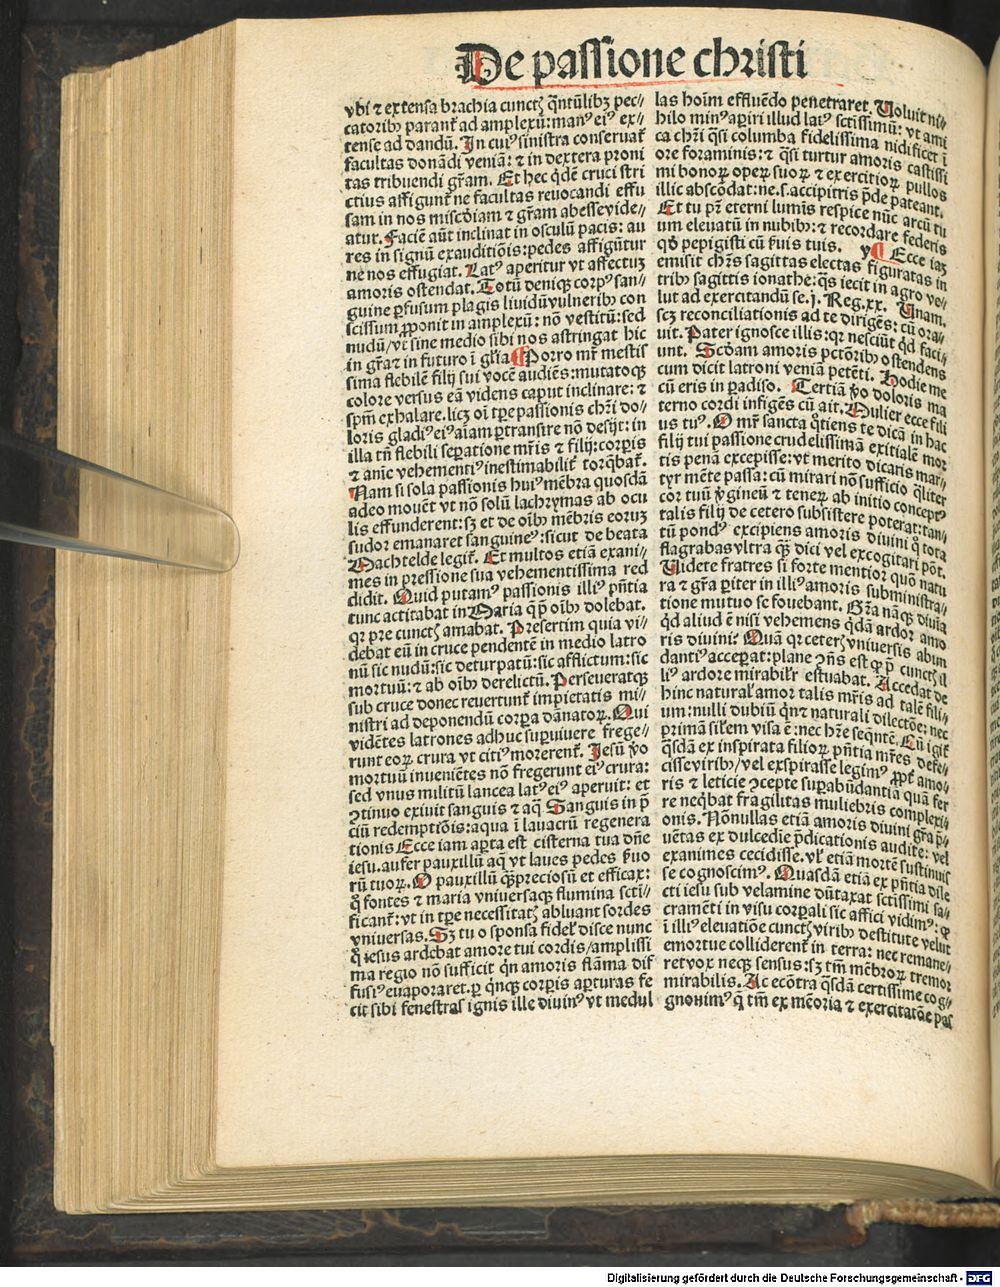 De passione christi
vbi ⁊ extensa brachia cunctꝫ q̃ntũlibꝫ pec⸗
catoribꝰ parant᷑ ad amplexũ: manꝰ eiꝰ ex⸗
tense ad dandũ. In cuiꝰ sinistra conseruat᷑
facultas donãdi veniã: ⁊ in dextera proni
tas tribuendi gr̃am. Et hec q̇dẽ cruci stri
ctius affigunt᷑ ne facultas reuocandi effu
sam in nos misc̃diam ⁊ gr̃am abesse vide⸗
atur. Faciẽ aũt inclinat in osculũ pacis: au
res in signũ exauditiõis: pedes affigũtur
ne nos effugiat. Latꝰ aperitur vt affectuꝫ
amoris ostendat. Totũ deniqꝫ corpꝰ san⸗
guine ꝑfusum plagis liuidũ vulneribꝰ con
scissum ꝓponit in amplexũ: nõ vestitũ: sed
nudũ/ vt sine medio sibi nos astringat hic
in gr̃a ⁊ in futuro ĩ gl̃ia ¶ Porro mr̃ mestis
sima flebilẽ filij sui vocẽ audiẽs: mutatoqꝫ
colore versus eã videns caput inclinare: ⁊
sp̃m exhalare. licꝫ oĩ tp̃e passionis chr̃i do⸗
loris gladiꝰ eiꝰ aĩam ꝑtransire nõ desijt: in
illa tñ flebili seꝑatione mr̃is ⁊ filij: corꝑis
⁊ anĩe vehementiꝰ inestimabilit᷑ torq̃bat᷑.
Nam si sola passionis huiꝰ mẽbra quosdã
adeo mouẽt vt nõ solũ lachrymas ab ocu
lis effunderent: sꝫ et de oĩbꝰ mẽbris eoruꝫ
sudor emanaret sanguineꝰ: sicut de beata
Machtelde legit᷑. Et multos etiã exani⸗
mes in pressione sua vehementissima red
didit. Quid putamꝰ passionis illiꝰ p̃ntia
tunc actitabat in Maria q̃ p̃ oĩbꝰ dolebat.
qr pre cunctꝫ amabat. Presertim quia vi⸗
debat eũ in cruce pendentẽ in medio latro
nũ sic nudũ: sic deturpatũ: sic afflictum: sic
mortuũ: ⁊ ab oĩbꝰ derelictũ. Perseueratqꝫ
sub cruce donec reuertunt᷑ impietatis mi⸗
nistri ad deponendũ corꝑa dãnatoꝝ. Qui
vidẽtes latrones adhuc suꝑuiuere frege⸗
runt eoꝝ crura vt citiꝰ morerent᷑. Jesũ ṽo
mortuũ inueniẽtes nõ fregerunt eiꝰ crura:
sed vnus militũ lancea latꝰ eiꝰ aperuit: et
ꝯtinuo exiuit sanguis ⁊ aq̃ Sanguis in p̃
ciũ redemptiõis: aqua ĩ lauacrũ regenera
tionis Ecce iam aꝑta est cisterna tua dñe
iesu. aufer pauxillũ aq̃ vt laues pedes ẜuo
rũ tuoꝝ. O pauxillũ q̃ꝫ preciosũ et efficax:
q̇ fontes ⁊ maria vniuersaqꝫ flumina sctĩ⸗
ficant᷑: vt in tp̃e necessitatꝫ abluant sordes
vniuersas. Sꝫ tu o sponsa fidel̛ disce nunc
q̇ iesus ardebat amore tui cordis/ amplissi
ma regio nõ sufficit q̇n amoris flãma dif
fusiꝰ euaporaret. ꝑ q̃nqꝫ corꝑis aꝑturas fe
cit sibi fenestras ignis ille diuinꝰ vt medul
las hoĩm effluẽdo penetraret. Uoluit ni⸗
hilo minꝰ aꝑiri illud latꝰ sctissimũ: vt ami
ca chr̃i q̃si columba fidelissima nidificet ĩ
ore foraminis: ⁊ q̃si turtur amoris castissi
mi bonoꝝ operũ suoꝝ ⁊ exercitioꝝ pullos
illic abscõdat: ne .s. accipitris p̃de pateant.
Et tu pr̃ eterni lumĩs respice nũc arcũ tu
um eleuatũ in nubibꝰ: ⁊ recordare federis
qd̛ pepigisti cũ ẜuis tuis. y ¶ Ecce iaꝫ
emisit chr̃s sagittas electas figuratas in
tribꝰ sagittis ionathe: q̃s iecit in agro ve⸗
lut ad exercitandũ se. j. Reg. xx. Unam.
scꝫ reconciliationis ad te dirigẽs: cũ ora⸗
uit. Pater ignosce illis: qr nesciũt qd̛ faci⸗
unt. Scd̃am amoris pctõribꝰ ostendens
cum dicit latroni veniã petẽti. Hodie me
cũ eris in ꝑadiso. Tertiã ṽo doloris ma
terno cordi infigẽs cũ ait. Mulier ecce fili
us tuꝰ. O mr̃ sancta q̃tiens te dicã in hac
filij tui passione crudelissimã exitialẽ mor
tis penã excepisse: vt merito dicaris mar⸗
tyr mẽte passa: cũ mirari nõ sufficio q̃liter
cor tuũ ṽgineũ ⁊ teneꝝ ab initio conceptꝰ
talis filij de cetero subsistere poterat: tan⸗
tũ pondꝰ excipiens amoris diuini q̇ tota
flagrabas vltra q̃ꝫ dici vel excogitari põt.
Uidete fratres si forte mentior quõ natu
ra ⁊ gr̃a ꝑiter in illiꝰ amoris subministra⸗
tione mutuo se fouebant. Gr̃a nãqꝫ diuĩa
qd̛ aliud ẽ nisi vehemens q̇dã ardor amo
ris diuini? Quã qr ceterꝫ vniuersis abun
dantiꝰ acceꝑat: plane ꝯñs est ꝙ p̃ cunctꝫ il
liꝰ ardore mirabilr̛ estuabat. Accedat de
hinc natural̛ amor talis mr̃is ad talẽ fili⸗
um: nulli dubiũ q̇n ⁊ naturali dilectõe: nec
primã sil̛em visa ẽ: nec hr̃e seq̃ntẽ. Cũ igit᷑
q̃sdã ex inspirata filioꝝ p̃ntia mr̃es defe⸗
cisse viribꝰ/ vel exspirasse legimꝰ ꝓpt᷑ amo⸗
ris ⁊ leticie ꝯcepte suꝑabũdantiã quã fer
re neq̃bat fragilitas muliebris complexi⸗
onis. Nõnullas etiã amoris diuini gr̃a p̃⸗
uẽtas ex dulcedĩe p̃dicationis audite: vel
exanimes cecidisse. vl̛ etiã mortẽ sustinuis
se cognoscimꝰ. Quasdã etiã ex p̃ntia dile
cti iesu sub velamine dũtaxat sctissimi sa⸗
cramẽti in visu corꝑali sic affici vidimꝰ: ꝙ
ĩ illiꝰ eleuatiõe cunctꝫ viribꝰ destitute velut
emortue colliderent᷑ in terra: nec remane⸗
ret vox neqꝫ sensus: sꝫ tm̃ mẽbroꝝ tremor
mirabilis. Ac ecõtra q̃sdã certissime cog⸗
gnouimꝰ q̃ tm̃ ex mẽoria ⁊ exercitatõe pas
Digitalisierung gefördert durch die Deutsche Forschungsgemeinschaft - DFG